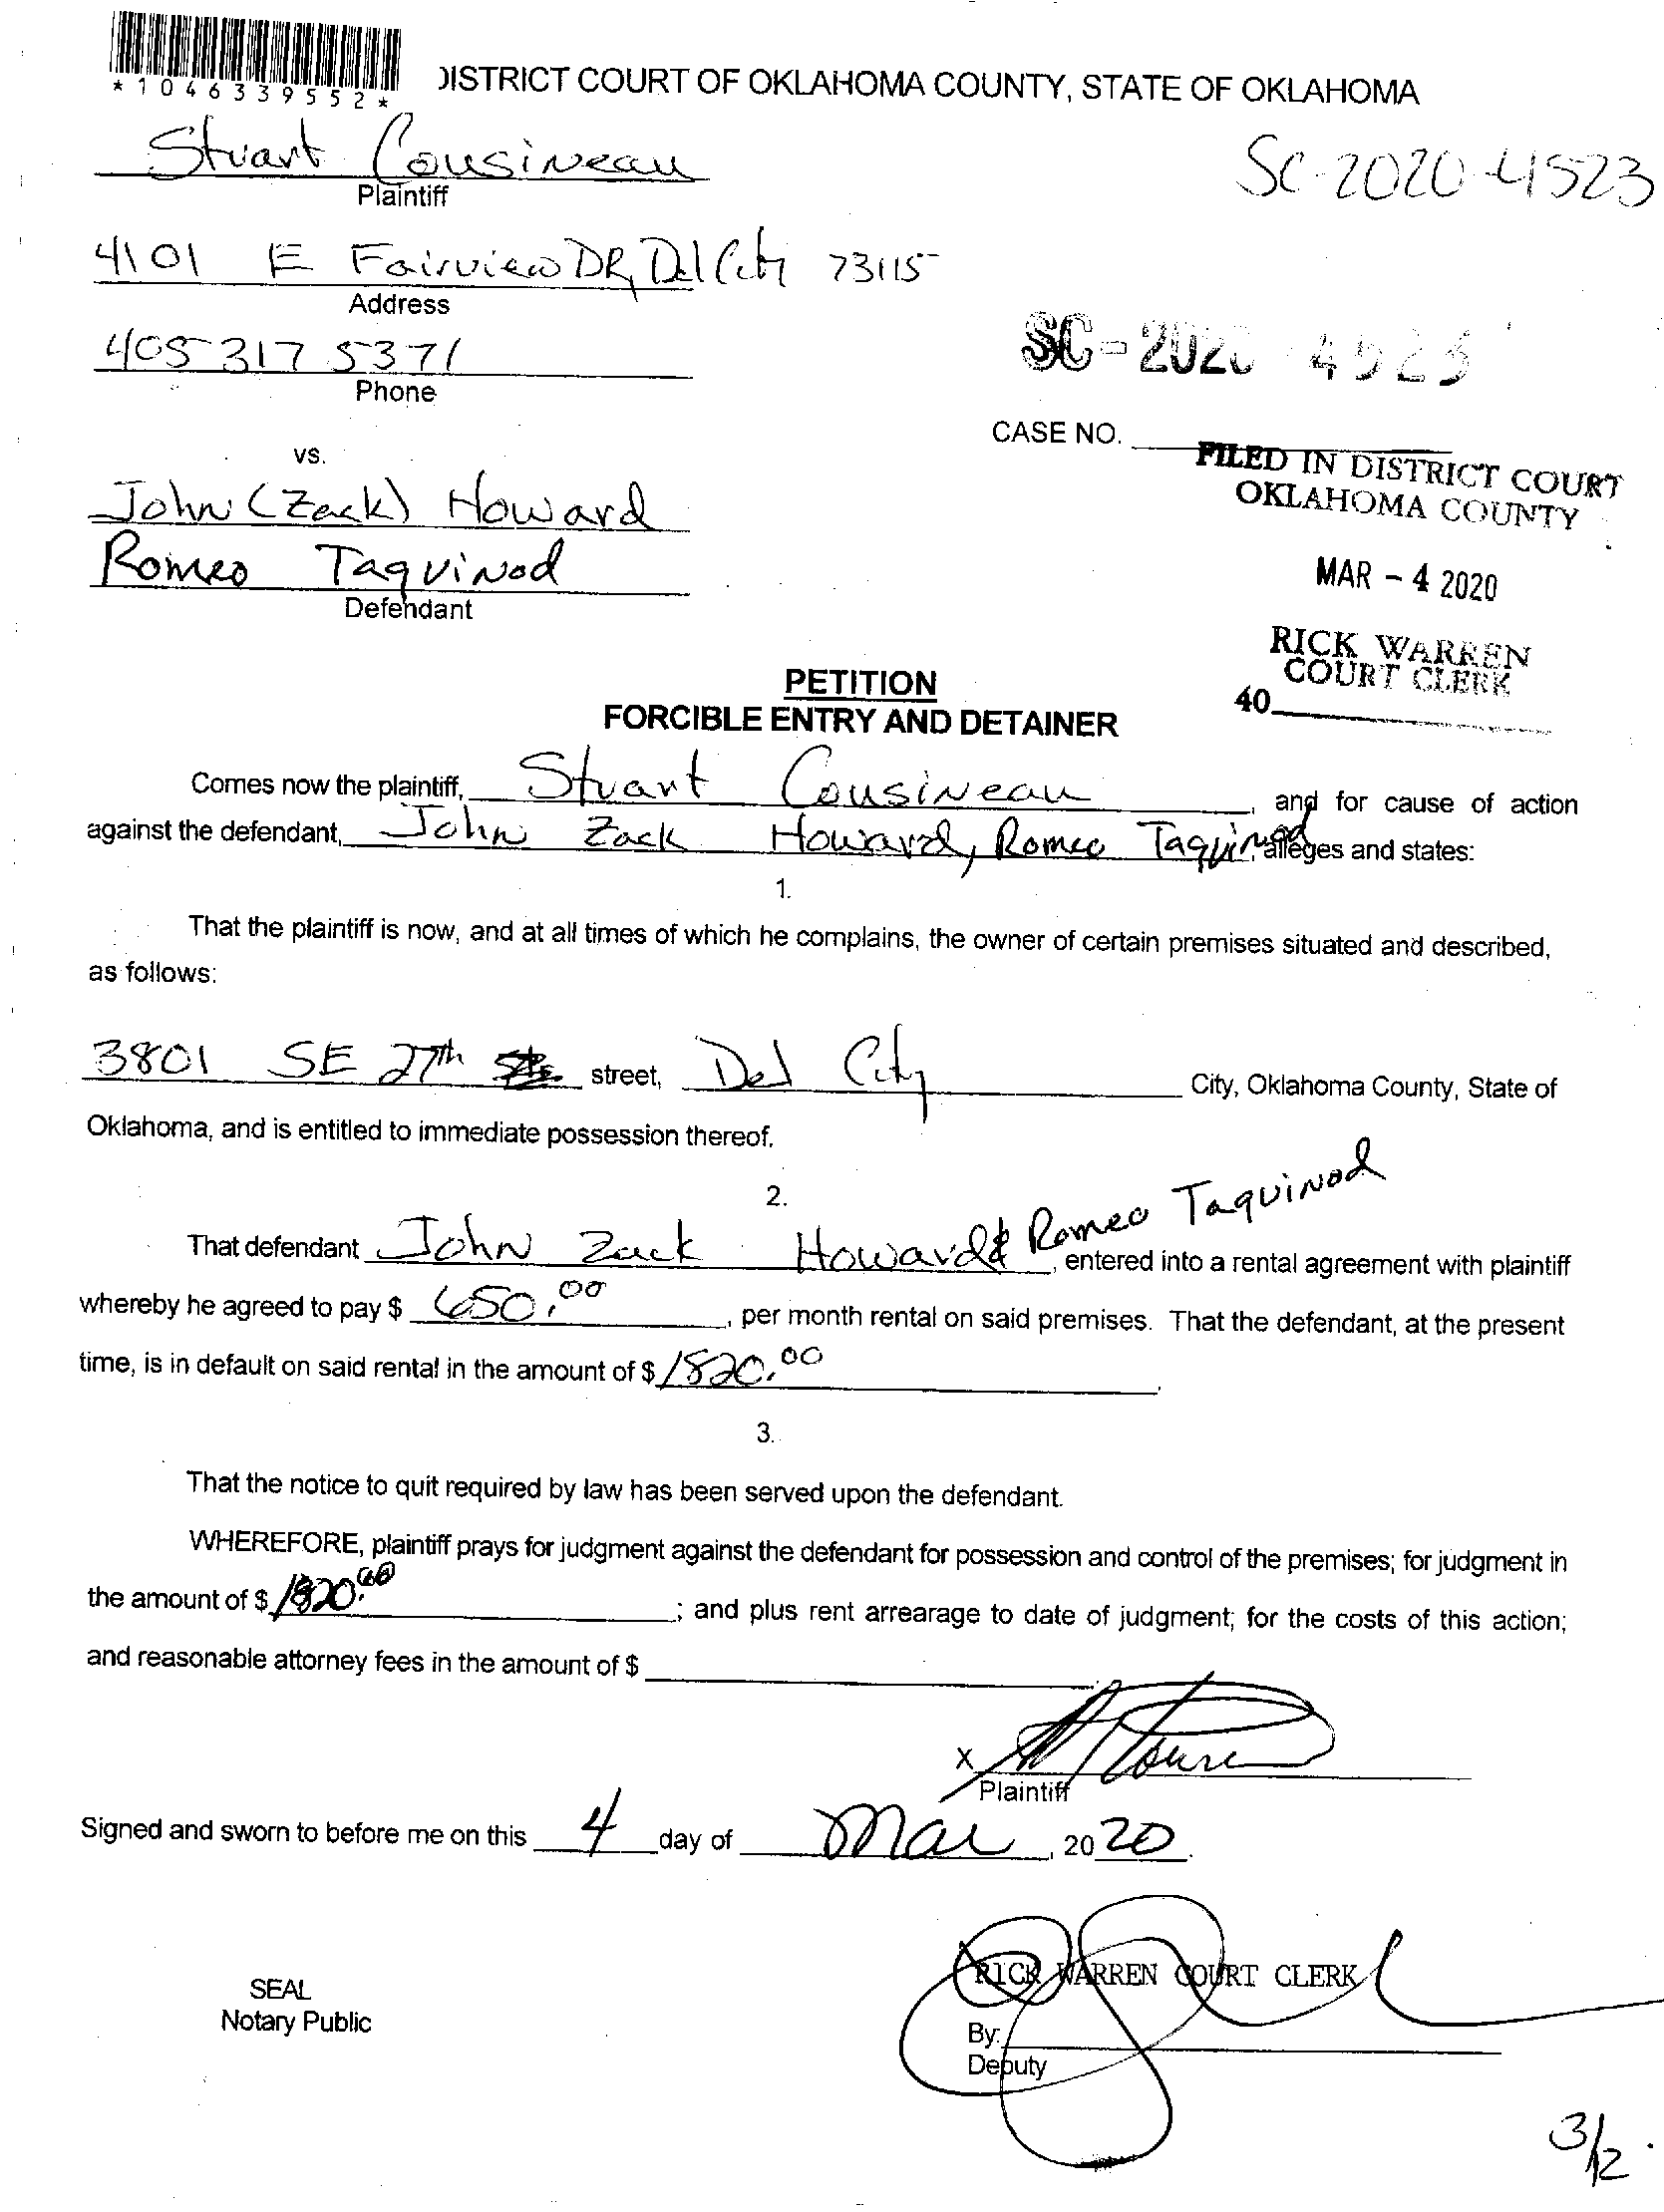 *1046339552*
DISTRICT COURT OF OKLAHOMA COUNTY, STATE OF OKLAHOMA
Stuart Cousineau
Plaintiff
SC-2020-4523
4101 E Fairview DR, Del City 73115
Address
405 317 5371
Phone
SC-2020 4523
CASE NO.
FILED IN DISTRICT COURT
OKLAHOMA COUNTY
vs.
John (Zack) Howard
Romeo Taquinod
Defendant
MAR - 4 2020
RICK WARREN
COURT CLERK
40
PETITION
FORCIBLE ENTRY AND DETAINER
Comes now the plaintiff, Stuart Cousineau, and for cause of action
against the defendant, John Zack Howard, Romeo Taquinod, alleges and states:
1.
That the plaintiff is now, and at all times of which he complains, the owner of certain premises situated and described,
as follows:
3801 SE 27th street, Del City City, Oklahoma County, State of
Oklahoma, and is entitled to immediate possession thereof.
2.
That defendant John Zack Howard & Romeo Taquinod, entered into a rental agreement with plaintiff
whereby he agreed to pay $ 650.00, per month rental on said premises. That the defendant, at the present
time, is in default on said rental in the amount of $ 1820.00.
3.
That the notice to quit required by law has been served upon the defendant.
WHEREFORE, plaintiff prays for judgment against the defendant for possession and control of the premises; for judgment in
the amount of $ 1820.00; and plus rent arrearage to date of judgment; for the costs of this action;
and reasonable attorney fees in the amount of $
X
Plaintiff
Signed and sworn to before me on this 4 day of Mar, 2020.
RICK WARREN COURT CLERK
SEAL
Notary Public
By:
Deputy
3/12